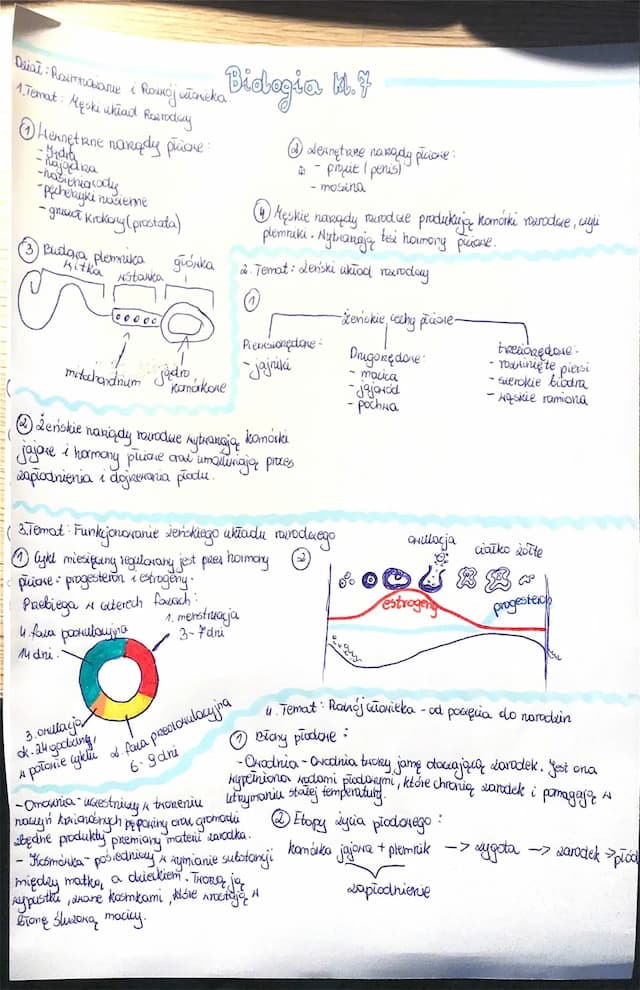 Biologia kl.7
Dział: Rozmnażanie i Rozwój człowieka.
1.Temat: Męski układ Rozrodczy
① Wewnętrzne narządy płciowe:
- Jądra
- najądrza
- nasieniowody
- pęcherzyki nasienne
- gruczoł krokowy (prostata)
② Zewnętrzne narządy płciowe:
- prącie (penis)
- moszna
④ Męskie narządy rozrodcze produkują komórki rozrodcze, czyli
plemniki. Wytwarzają też hormony płciowe.
③ Budowa plemnika
witka
wstawka
główka
mitochondrium
jądro
komórkowe
2. Temat: Żeński układ rozrodczy
①
Żeńskie cechy płciowe
Pierwszorzędowe:
- jajniki
Drugorzędowe:
- macica
- jajowód
- pochwa
trzeciorzędowe:
- rozwinięte piersi
- szerokie biodra
- wąskie ramiona
② Żeńskie narządy rozrodcze wytwarzają komórki
jajowe i hormony płciowe oraz umożliwiają proces
zapłodnienia i dojrzewania płodu.
3.Temat: Funkcjonowanie żeńskiego układu rozrodczego
① Cykl miesięczny regulowany jest przez hormony
płciowe: progesteron i estrogeny.
Przebiega w czterech fazach:
1. menstruacja
3-7 dni
4. faza poowulacyjna
14 dni.
3. owulacja
ok. 24 godziny,
w połowie cyklu
2. faza przedowulacyjna
6-9 dni
②
owulacja
ciałko żółte
estrogeny
progesteron
4. Temat: Rozwój człowieka - od poczęcia do narodzin
① Błony płodowe:
- Owodnia - Owodnia tworzy jamę otaczającą zarodek. Jest ona
wypełniona wodami płodowymi, które chronią zarodek i pomagają w
utrzymaniu stałej temperatury.
- Omocznia - uczestniczy w tworzeniu
naczyń krwionośnych pępowiny oraz gromadzi
zbędne produkty przemiany materii zarodka.
- Kosmówka - pośredniczy w wymianie substancji
między matką, a dzieckiem. Tworzą ją
wypustki, zwane kosmkami, które wrastają w
błonę śluzową macicy.
② Etapy życia płodowego:
komórka jajowa + plemnik → zygota → zarodek → płód
zapłodnienie